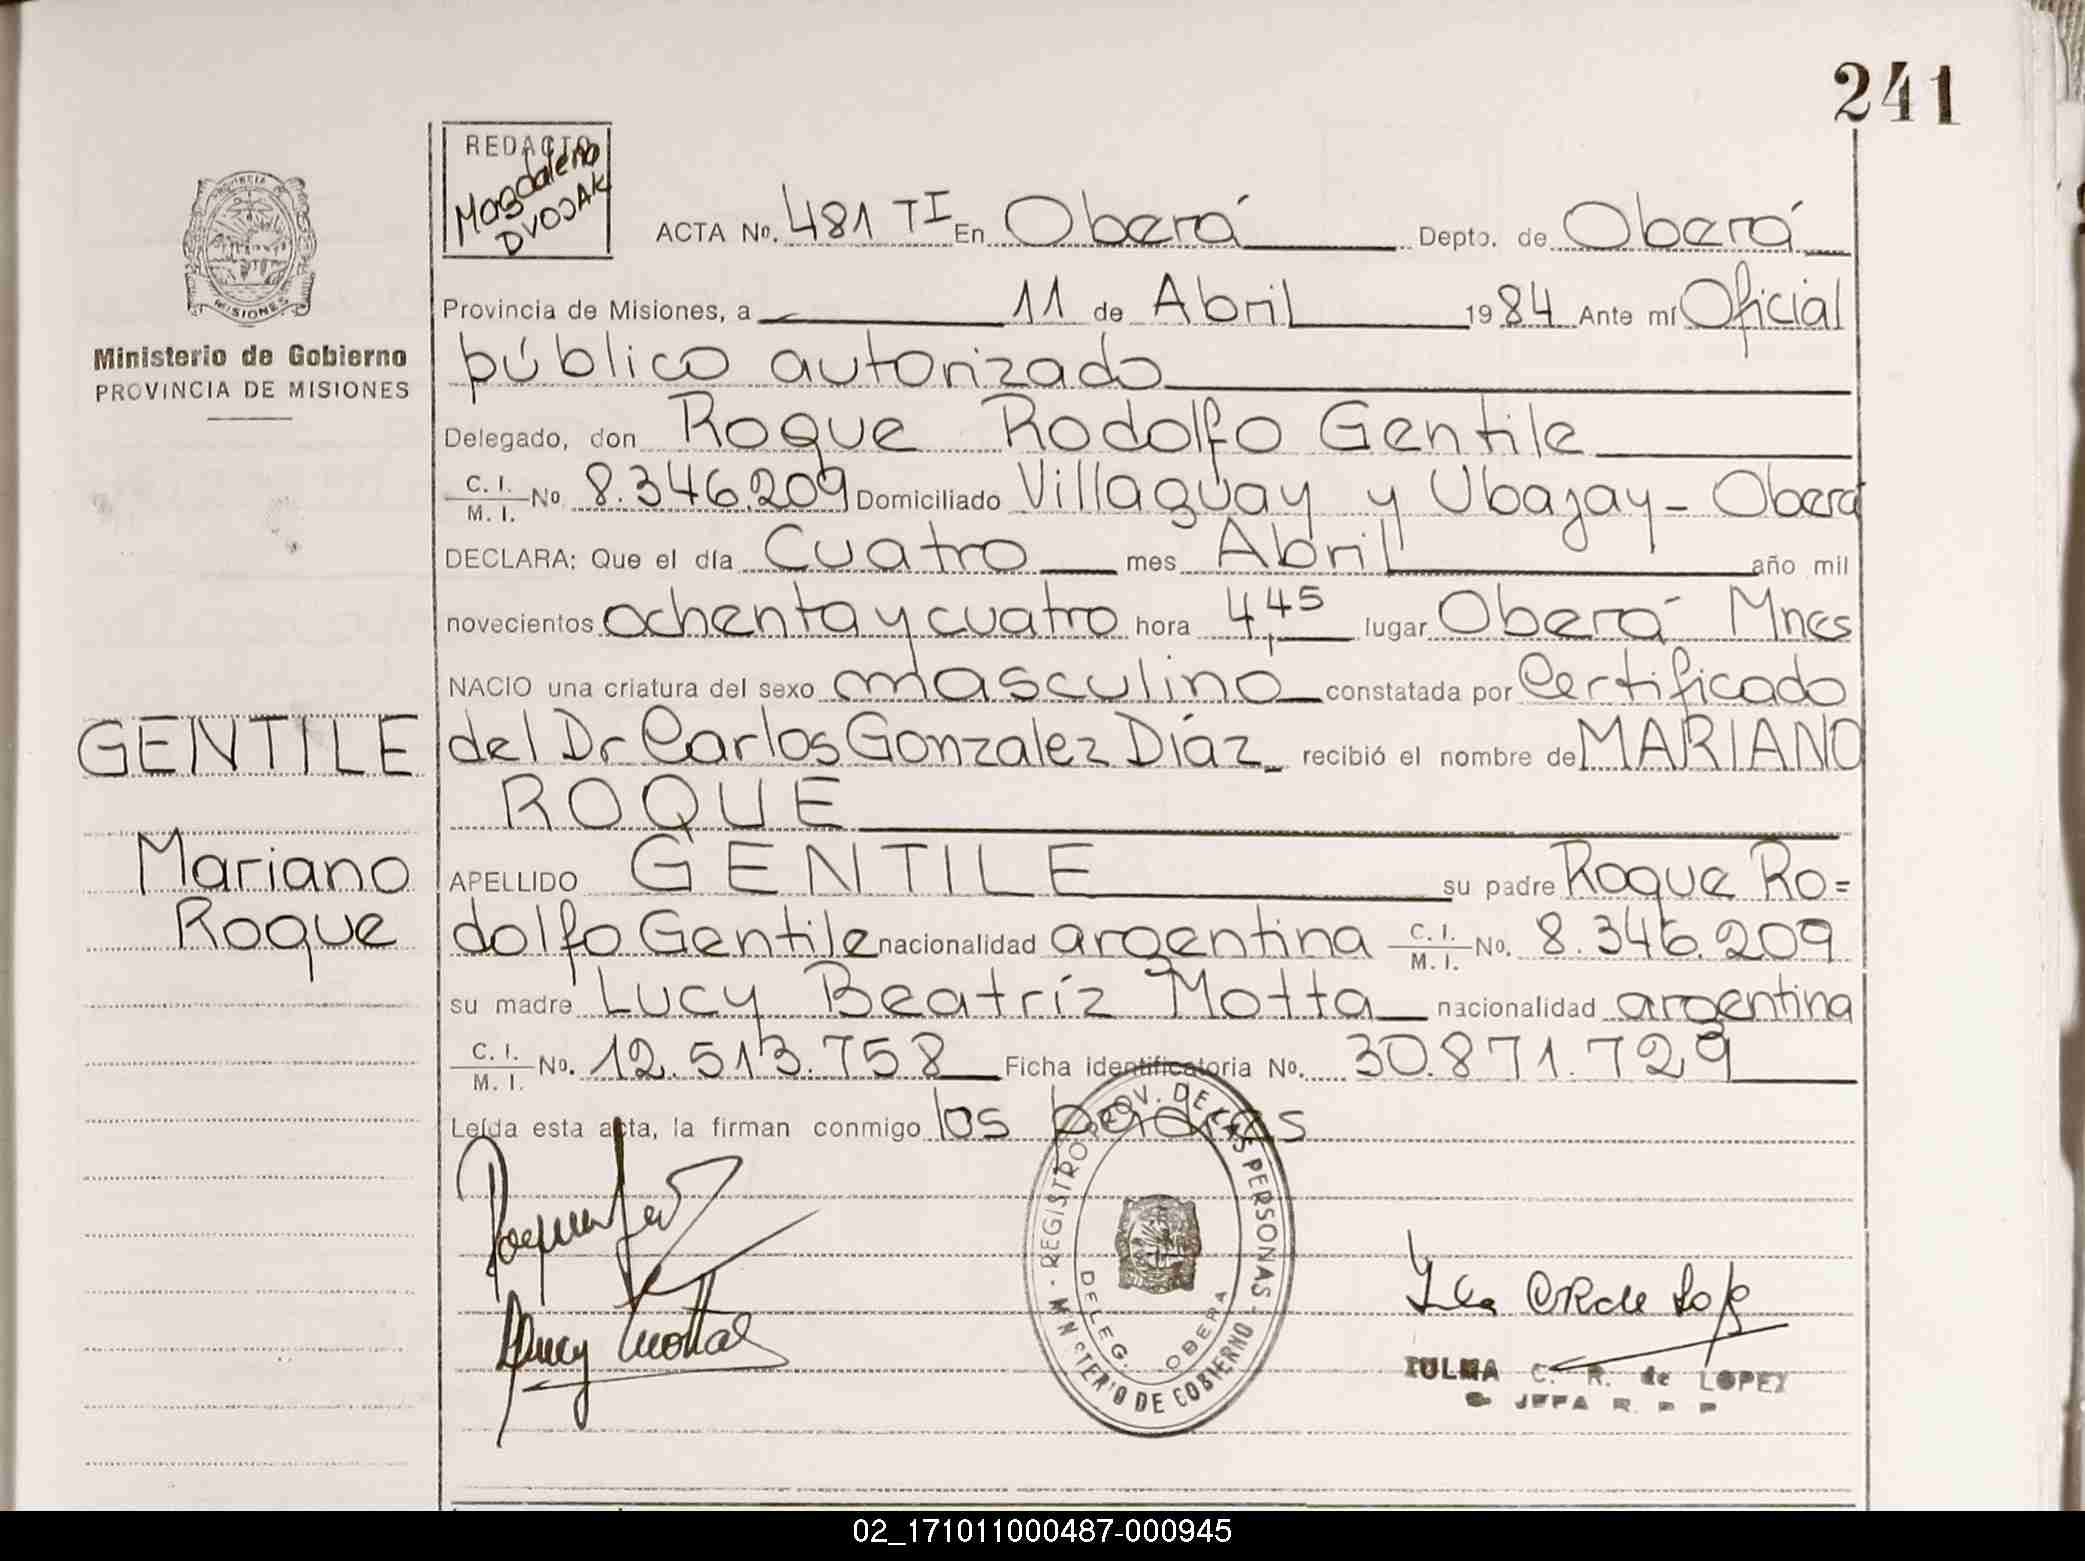 241
REDACTO
Magdalena
DVOJAK
PROVINCIA
MISIONES
Ministerio de Gobierno
PROVINCIA DE MISIONES
ACTA No. 481 TI En Oberá Depto. de Oberá
Provincia de Misiones, a 11 de Abril 1984 Ante mí Oficial
público autorizado
Delegado, don Roque Rodolfo Gentile
C. I. / M. I. No 8.346.209 Domiciliado Villaguay y Ubajay - Oberá
DECLARA: Que el día Cuatro mes Abril año mil
novecientos ochenta y cuatro hora 4,45 lugar Oberá Mnes
NACIO una criatura del sexo masculino constatada por Certificado
GENTILE
del Dr Carlos Gonzalez Díaz recibió el nombre de MARIANO
ROQUE
Mariano
Roque
APELLIDO GENTILE su padre Roque Ro=
dolfo Gentile nacionalidad argentina C. I. / M. I. No. 8.346.209
su madre Lucy Beatríz Motta nacionalidad argentina
C. I. / M. I. No. 12.513.758 Ficha identificatoria No. 30.871.729
Leída esta acta, la firman conmigo los padres
REGISTRO PROV. DE LAS PERSONAS - MINISTERIO DE GOBIERNO
DELEG. OBERA
Lucy Motta
C. R. de LOPEZ
JEFA R. P. P
02_171011000487-000945